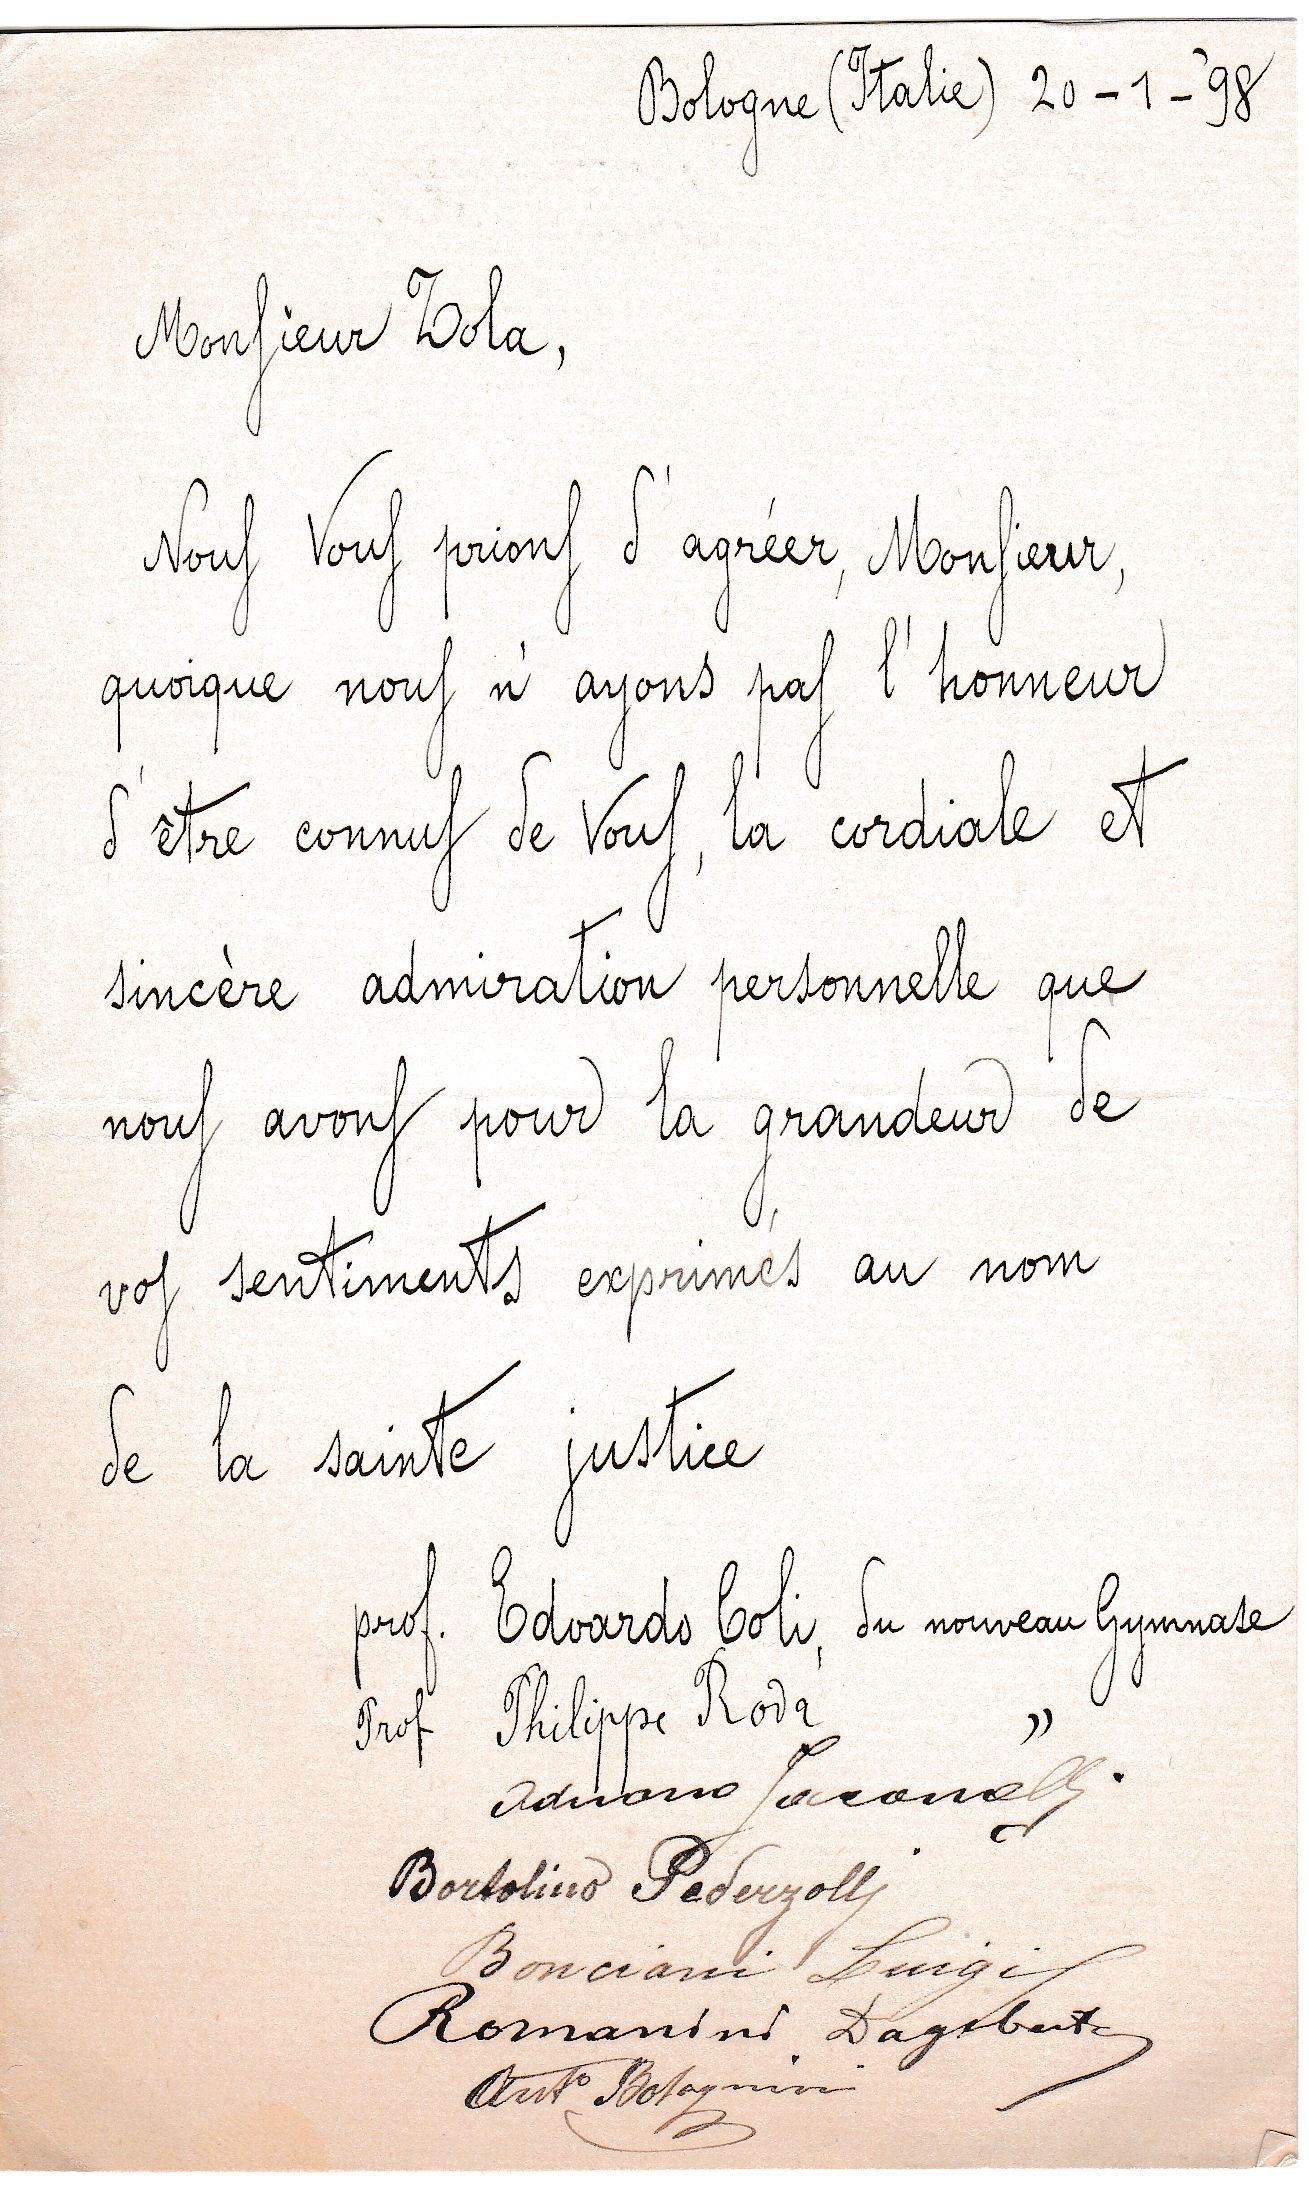 Bologne (Italie) 20-1-'98
Monsieur Zola,
Nous Vous prions d'agréer, Monsieur,
quoique nous n'ayons pas l'honneur
d'être connus de Vous, la cordiale et
sincère admiration personnelle que
nous avons pour la grandeur de
vos sentiments exprimés au nom
de la sainte justice
prof. Edoardo Coli, du nouveau Gymnase
Prof Philippe Roda "
Adriano
Bortolino Pederzolli
Bonciani Luigi
Romanini Dagoberto
Ant° Bolognini